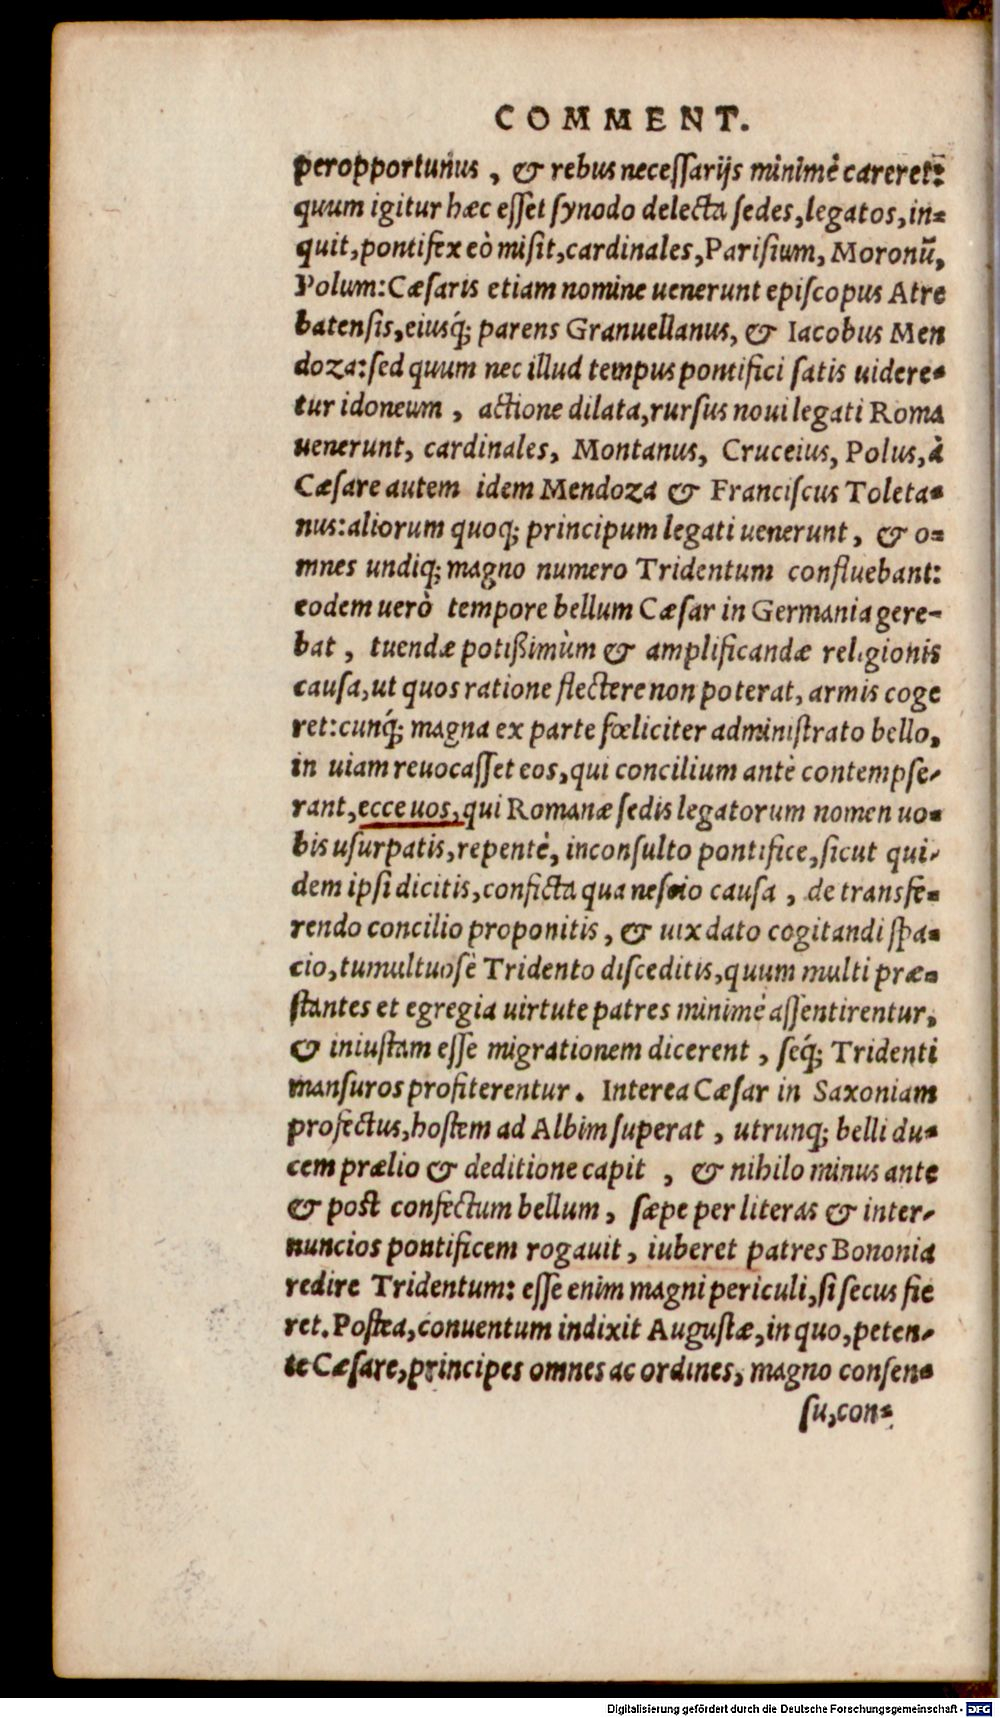 COMMENT.
peropportunus, & rebus necessarijs minimè careret:
quum igitur hæc esset synodo delecta sedes, legatos, in-
quit, pontifex eò misit, cardinales, Parisium, Moronũ,
Polum: Cæsaris etiam nomine uenerunt episcopus Atre
batensis, eiusq́; parens Granuellanus, & Iacobus Men
doza: sed quum nec illud tempus pontifici satis uidere-
tur idoneum, actione dilata, rursus noui legati Roma
uenerunt, cardinales, Montanus, Cruceius, Polus, à
Cæsare autem idem Mendoza & Franciscus Toleta-
nus: aliorum quoq; principum legati uenerunt, & o-
mnes undiq; magno numero Tridentum confluebant:
eodem uerò tempore bellum Cæsar in Germania gere-
bat, tuendæ potißimùm & amplificandæ religionis
causa, ut quos ratione flectere non poterat, armis coge
ret: cunq́; magna ex parte fœliciter administrato bello,
in uiam reuocasset eos, qui concilium antè contempse-
rant, ecce uos, qui Romanæ sedis legatorum nomen uo-
bis usurpatis, repentè, inconsulto pontifice, sicut qui-
dem ipsi dicitis, conficta qua nescio causa, de transfe-
rendo concilio proponitis, & uix dato cogitandi spa-
cio, tumultuosè Tridento disceditis, quum multi præ-
stantes et egregia uirtute patres minimè assentirentur,
& iniustam esse migrationem dicerent, seq́; Tridenti
mansuros profiterentur. Interea Cæsar in Saxoniam
profectus, hostem ad Albim superat, utrunq; belli du-
cem prælio & deditione capit, & nihilo minus ante
& post confectum bellum, sæpe per literas & inter-
nuncios pontificem rogauit, iuberet patres Bononia
redire Tridentum: esse enim magni periculi, si secus fie
ret. Postea, conuentum indixit Augustæ, in quo, peten-
te Cæsare, principes omnes ac ordines, magno consen-
su, con-
Digitalisierung gefördert durch die Deutsche Forschungsgemeinschaft - DFG